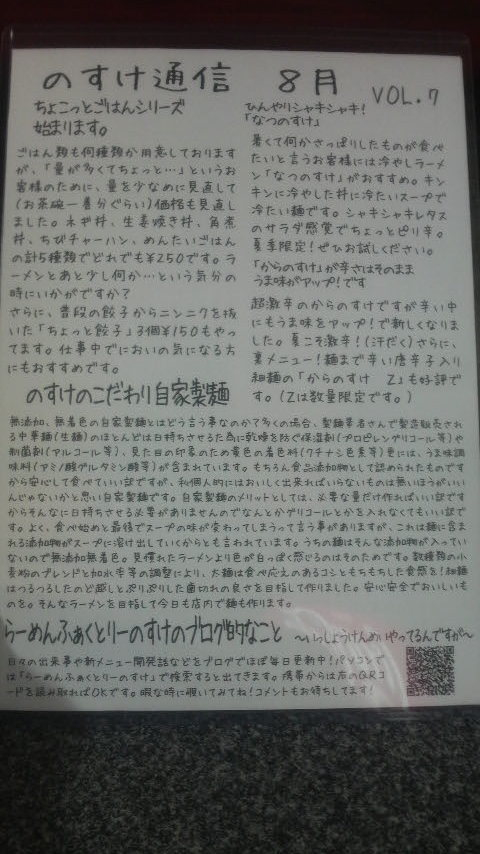 のすけ通信 8月 VOL.7
ちょこっとごはんシリーズ
始まります。
ごはん類も何種類か用意しております
が、「量が多くてちょっと…」というお
客様のために、量を少なめに見直して
(お茶碗一番分ぐらい)価格も見直し
ました。ネギ丼、生姜焼き丼、角煮
丼、ちびチャーハン、めんたいごはん
の計5種類でどれでも¥250です。ラ
ーメンとあと少し何か…という気分の
時にいかがですか?
さらに、普段の餃子からニンニクを抜
いた「ちょっと餃子」3個¥150もやっ
てます。仕事中でにおいの気になる方
にもおすすめです。
ひんやりシャキシャキ!
「なつのすけ」
暑くて何かさっぱりしたものが食べ
たいと言うお客様には冷やしラーメ
ン「なつのすけ」がおすすめ。キン
キンに冷やした丼に冷たいスープで
冷たい麺です。シャキシャキレタス
のサラダ感覚でちょっとピリ辛。
夏季限定!ぜひお試しください。
「からのすけ」が辛さはそのまま
うま味がアップ!です
超激辛のからのすけですが辛い中
にもうま味をアップ!で新しくなりま
した。夏こそ激辛!(汗だく)さらに、
裏メニュー!麺まで辛い唐辛子入り
細麺の「からのすけ Z」も好評で
す。(Zは数量限定です。)
のすけのこだわり自家製麺
無添加、無着色の自家製麺とはどう言う事なのか?多くの場合、製麺業者さんで製造販売され
る中華麺(生麺)のほとんどは日持ちさせる為に乾燥を防ぐ保湿剤(プロピレングリコール等)や
制菌剤(アルコール等)、見た目の印象のための黄色の着色料(クチナシ色素等)更には、うま味調
味料(アミノ酸グルタミン酸等)が含まれています。もちろん食品添加物として認められたものです
から安心して食べていい訳ですが、私個人的にはおいしく出来ればいらないものは無いほうがいい
んじゃないかと思い自家製麺です。自家製麺のメリットとしては、必要な量だけ作ればいい訳です
からそんなに日持ちさせる必要がありませんのでなんとかグリコールとかを入れなくてもいい訳で
す。よく、食べ始めと最後でスープの味が変わってしまうって言う事がありますが、これは麺に含ま
れる添加物がスープに溶け出していくからとも言われています。うちの麺はそんな添加物が入ってい
ないので無添加無着色。見慣れたラーメンより色が白っぽく感じるのはそのためです。数種類の小
麦粉のブレンドと加水率等の調整により、太麺は食べ応えのあるコシともちもちした食感を!細麺
はつるつるしたのど越しとぷりぷりした歯切れの良さを目指して作りました。安心安全でおいしいも
のを。そんなラーメンを目指して今日も店内で麺も作ります。
らーめんふぁくとりーのすけのブログ的なこと ～いっしょうけんめいやってるんですが～
日々の出来事や新メニュー開発話などをブログでほぼ毎日更新中!パソコンで
は「らーめんふぁくとりーのすけ」で検索すると出てきます。携帯からは右のQRコ
ードを読み取ればOKです。暇な時に覗いてみてね!コメントもお待ちしてます!